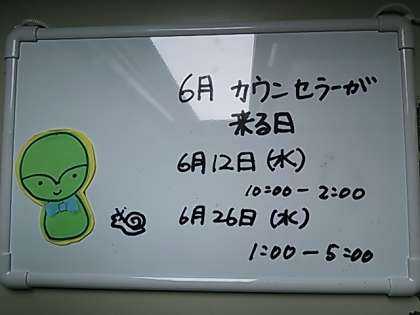 6月 カウンセラーが
来る日
6月12日(水)
10:00-2:00
6月26日(水)
1:00-5:00